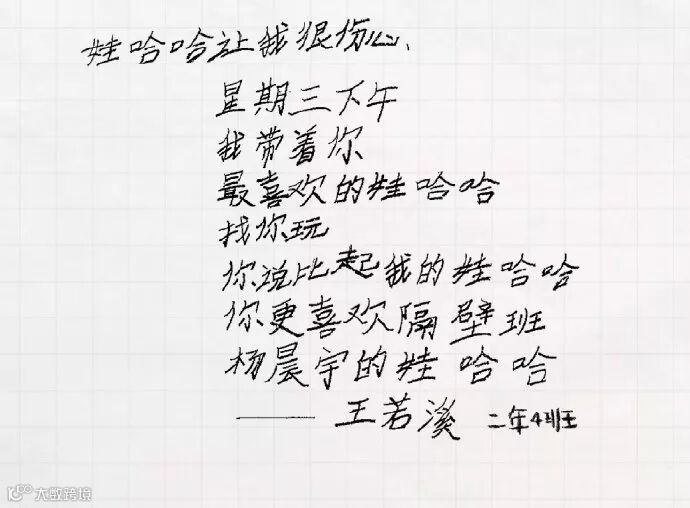 娃哈哈让我很伤心、
星期三下午
我带着你
最喜欢的娃哈哈
找你玩
你说比起我的娃哈哈
你更喜欢隔壁班
杨晨宇的娃哈哈
——王若溪 二年4班
大数跨境